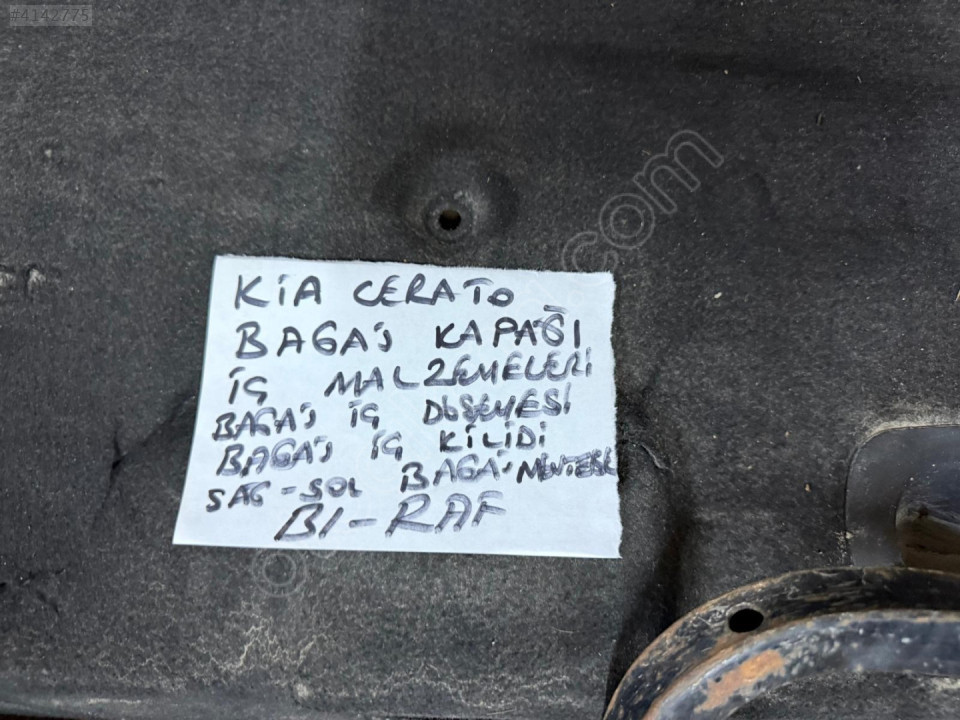 #4142775
KİA CERATO
BAGAJ KAPAĞI
İÇ MALZEMELERİ
BAGAJ İÇ DÖŞEMESİ
BAGAJ İÇ KİLİDİ
SAĞ-SOL BAGAJ MENTEŞE
BI-RAF
.com